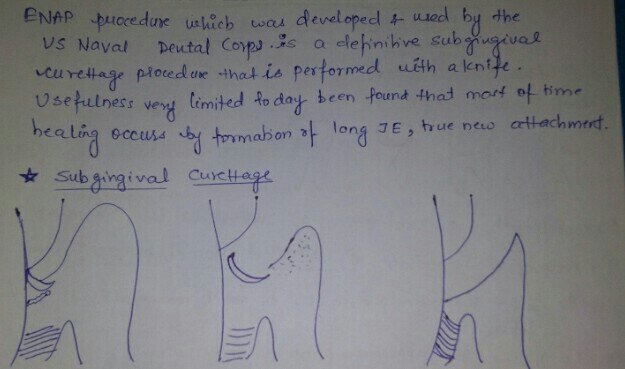 ENAP procedure which was developed & used by the
US Naval Dental Corps. is a definitive subgingival
curettage procedure that is performed with a knife.
Usefulness very limited today been found that most of time
healing occurs by formation of long JE, true new attachment.
★ Subgingival Curettage